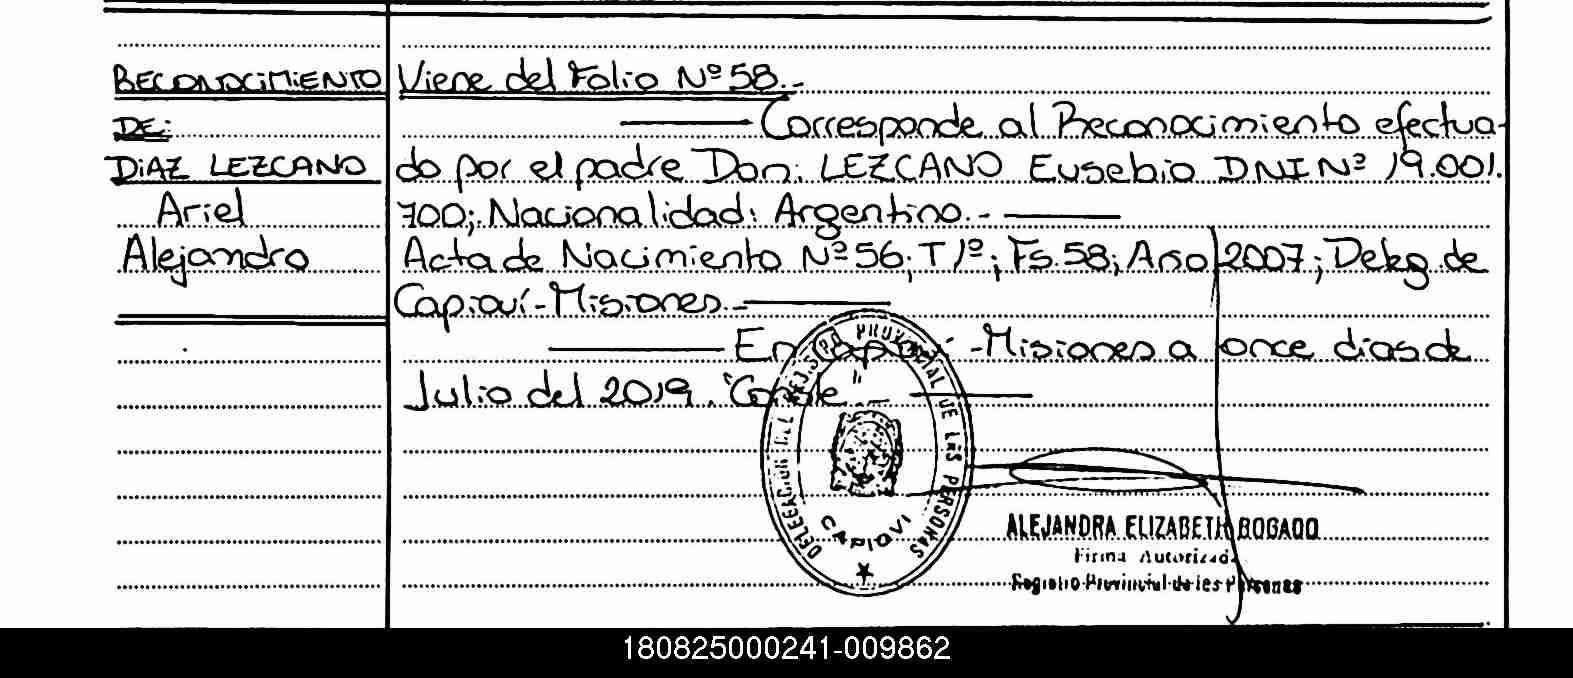 RECONOCIMIENTO
DE:
DiAZ LEZCANO
Ariel
Alejandro
Viene del Folio Nº 58.-
Corresponde al Reconocimiento efectua-
do por el padre Don: LEZCANO Eusebio DNI Nº 19.001.
700; Nacionalidad: Argentino.-
Acta de Nacimiento Nº 56; T/1º; Fs. 58; Año 2007; Deleg. de
Capioví-Misiones.-
En Capioví-Misiones a once dias de
Julio del 2019. "Conste".-
DELEGACION DEL REGISTRO PROVINCIAL DE LAS PERSONAS
CAPIOVI
ALEJANDRA ELIZABETH BOGADO
Firma Autorizada
Registro Provincial de las Personas
180825000241-009862